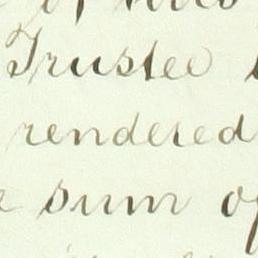 Trustee
rendered
sum of